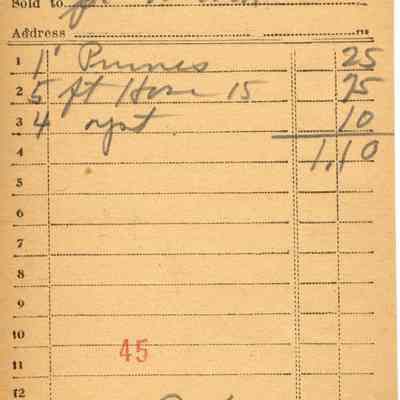 Sold to
Address
1 1 Prunes 25
2 5 ft Hose 15 75
3 4 10
4 1.10
5
6
7
8
9
10
45
11
12